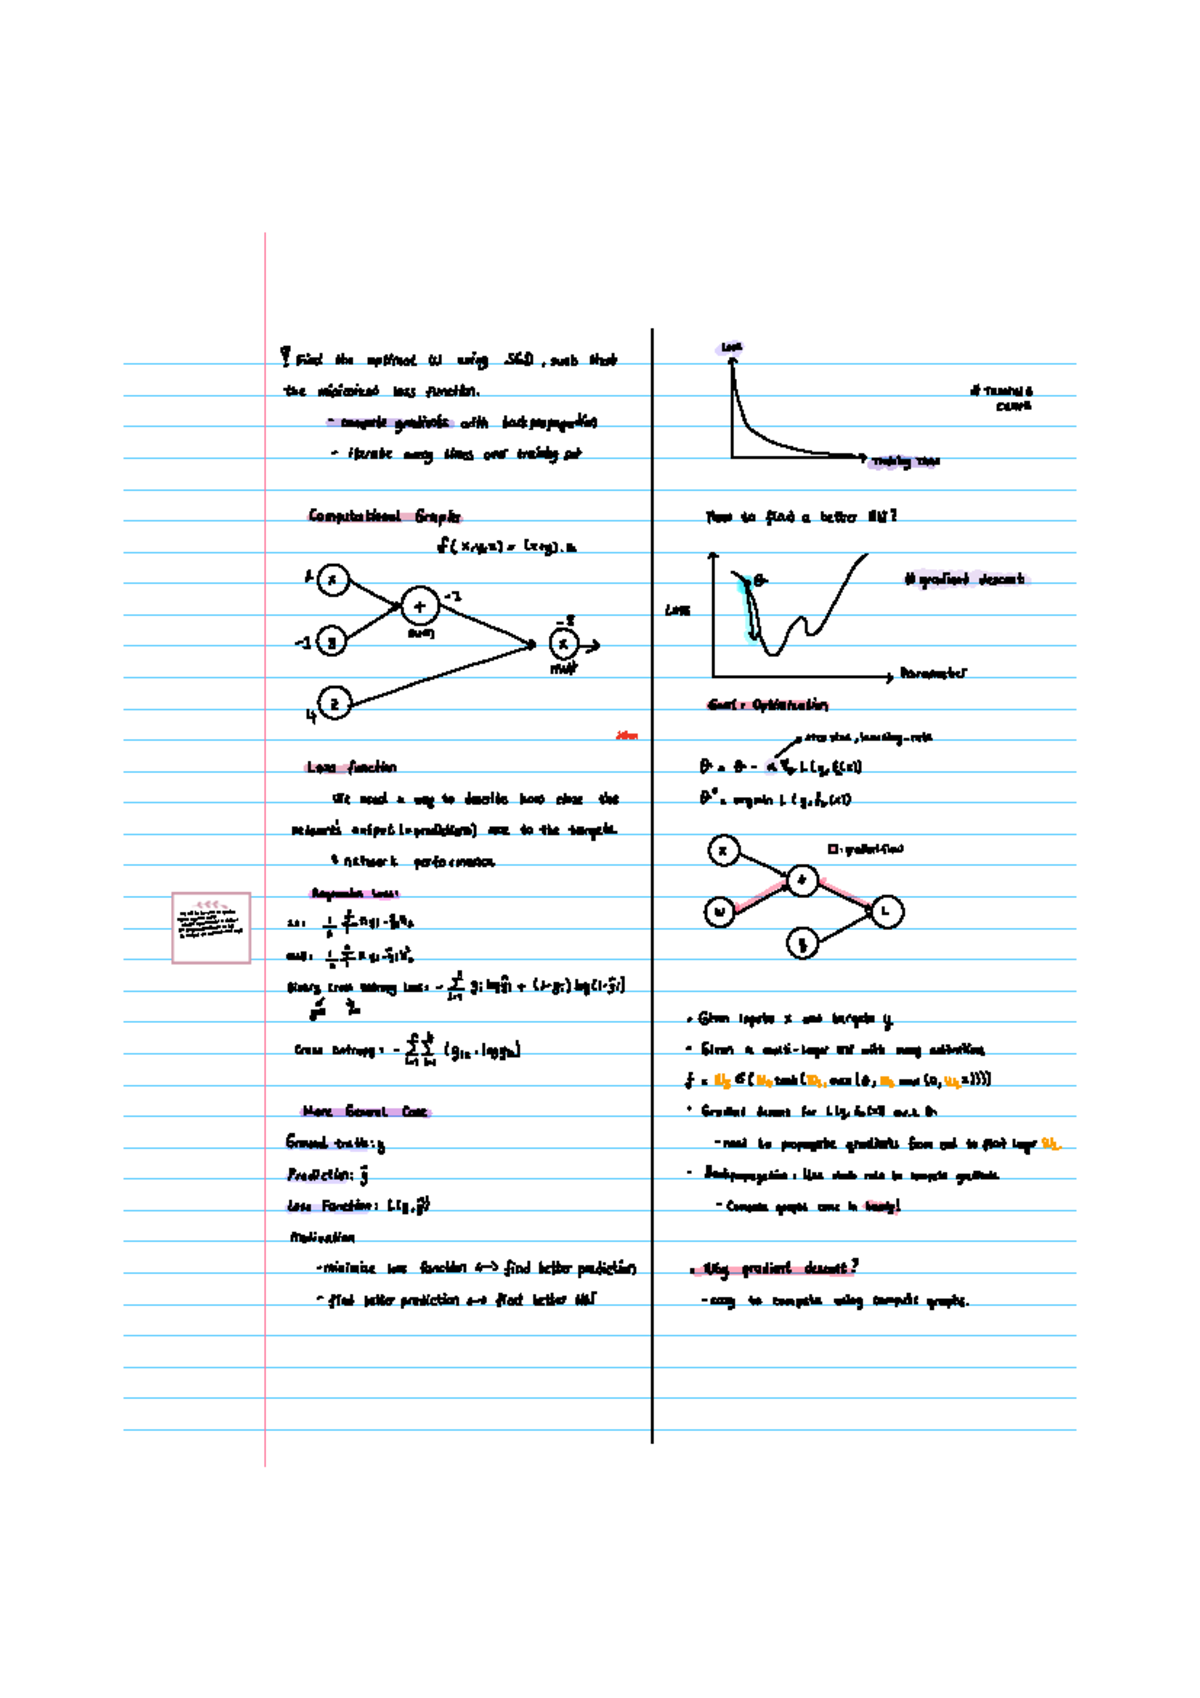 Find the optimal W using SGD, such that
the minimized loss function.
- compute gradients with backpropagation
- iterate many times over training set
Computational Graphs
f(x,y,z) = (x+y).z
1 x
+ -2
sum
-1 y
-8
x
mult
4 z
Loss function
We need a way to describe how close the
network's output (= predictions) are to the targets.
network performance
Regression Loss:
L1:
MSE:
Binary Cross Entropy Loss: - Σ yi log ŷi + (1-yi) log(1-ŷi)]
Cross Entropy: - ΣΣ (yik . log ŷik)
More General Case
Ground truth: y
Prediction: ŷ
Loss Function: L(y,ŷ)
Motivation
- minimize loss function <-> find better prediction
- find better prediction <-> find better NN
Loss
# Training
curve
Training Time
How to find a better NN?
θ
# gradient descent
Loss
Parameter
Goal: Optimization
step size, learning-rate
θ = θ - α ∇θ L(y, fθ(x))
θ* = argmin L(y, fθ(x))
x
: gradient flow
W
L
y
- Given inputs x and targets y
- Given a multi-layer NN with many activations
f = W5 σ(W4 tanh(W3, max(0, W2 max(0, W1 x))))
- Gradient descent for L(y, fθ(x)) w.r.t. θ
- need to propagate gradients from end to first layer W1.
- Backpropagation: Use chain rule to compute gradients.
- Compute graphs come in handy!
. Why gradient descent?
- easy to compute using compute graphs.